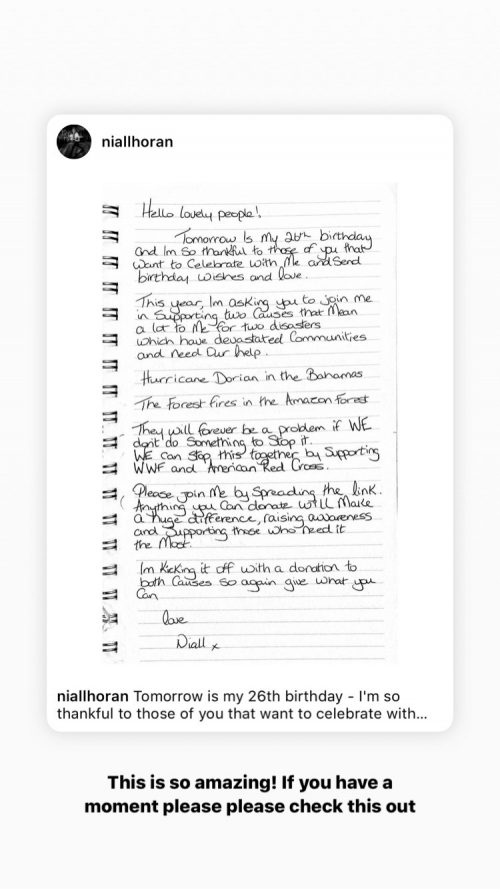 niallhoran
Hello lovely people!
Tomorrow Is My 26th birthday
and Im So thankful to those of you that
want to Celebrate with Me and Send
birthday wishes and love.
This year, Im asking you to join me
in Supporting two Causes that Mean
a lot to Me for two disasters
which have devastated Communities
and need Our help.
Hurricane Dorian in the Bahamas
The Forest fires in the Amazon Forest
They will forever be a problem if WE
don't do Something to Stop it.
WE can Stop this together by Supporting
WWF and American Red Cross.
Please join Me by Spreading the link.
Anything you Can donate will Make
a huge difference, raising awareness
and Supporting those who need it
the Most.
Im Kicking it off with a donation to
both Causes So again give what you
Can
love
Niall x
niallhoran Tomorrow is my 26th birthday - I'm so
thankful to those of you that want to celebrate with...
This is so amazing! If you have a
moment please please check this out